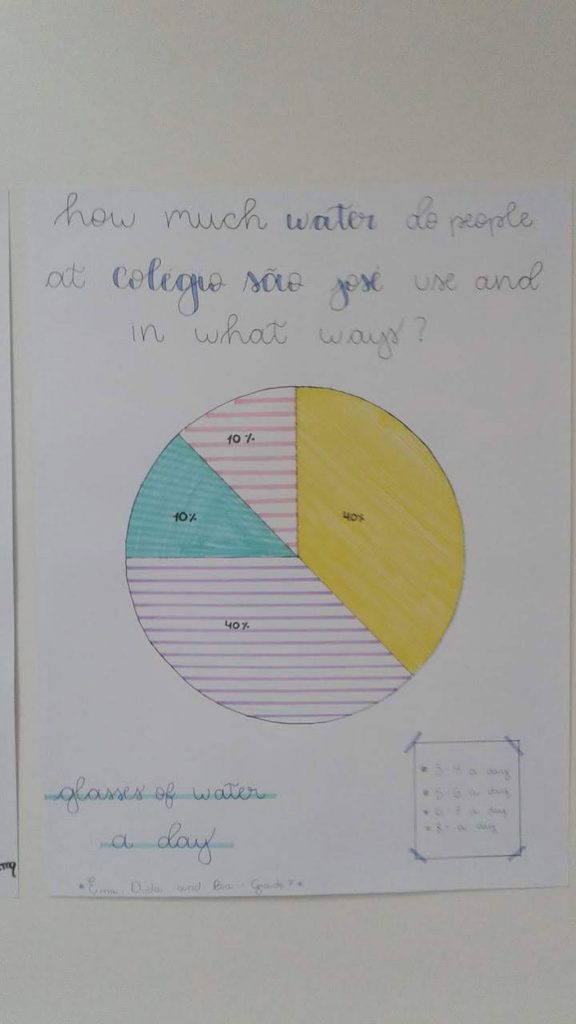 how much water do people
at colégio são josé use and
in what ways?
10%
40%
10%
40%
glasses of water
a day
3-4 a day
5-6 a day
a day
8- a day
and Grade